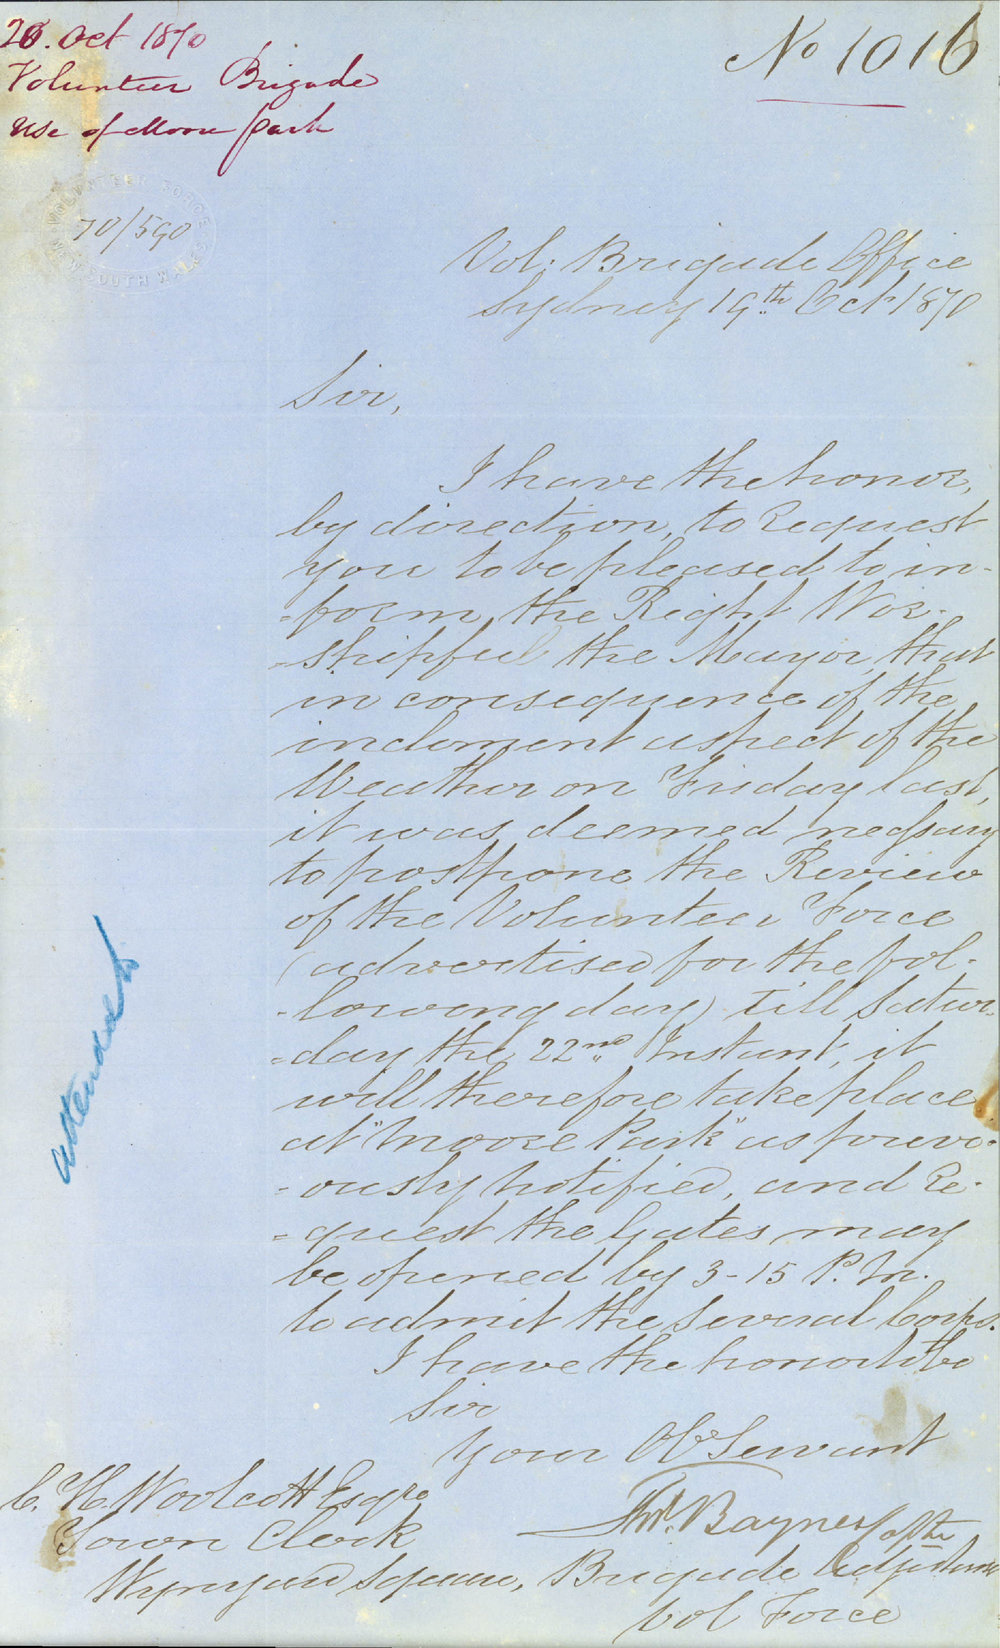 20. Oct 1870
Volunteer Brigade
Use of Moore Park
No 1016
VOLUNTEER FORCE
NEW SOUTH WALES
70/590
Vol: Brigade Office
Sydney 19th. Oct 1870
Sir,
I have the honor,
by direction, to Request
you to be pleased to in-
-form the Right Wor-
-shipful the Mayor, that
in consequence of the
inclement aspect of the
Weather on Friday last,
it was deemed necessary
to postpone the Review
of the Volunteer Force
(advertised for the fol-
-lowing day) till Satur-
-day the 22nd. Instant; it
will therefore take place
at "Moore Park" as previ-
-ously notified, and Re-
-quest the Gates may
be opened by 3-15 P.M.
to admit the several Corps.
I have the honor to be
Sir
Your Ob Servant
Baynes Captn
Brigade Adjutant
Vol Force
C. H. Woolcott Esqre
Town Clerk
Wynyard Square,
attended to